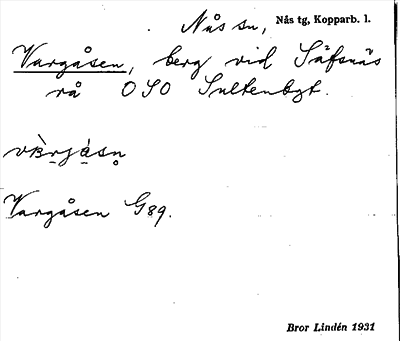 Nås sn, Nås tg, Kopparb. l.
Vargåsen, berg vid Säfsnäs
rå OSO Sultenbgt.
Vargåsen G89.
Bror Lindén 1931